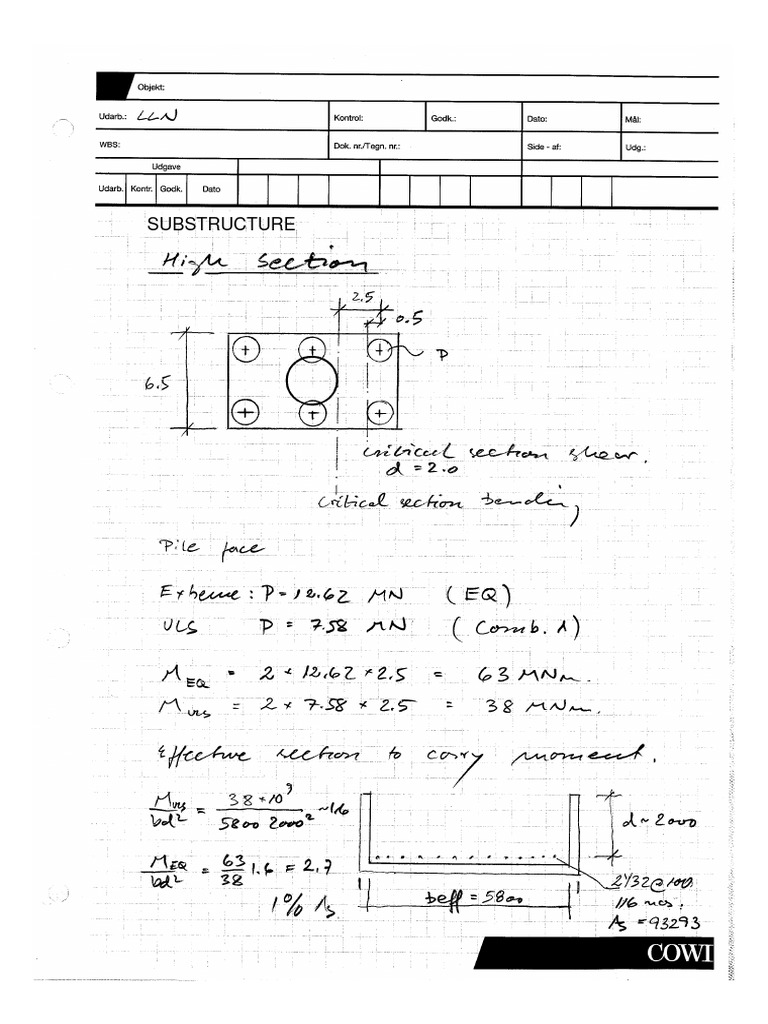 Objekt:
Udarb.: LLN Kontrol: Godk.: Dato: Mål:
WBS: Dok. nr./Tegn. nr.: Side - af: Udg.:
Udgave
Udarb. Kontr. Godk. Dato
SUBSTRUCTURE
High section
2.5
0.5
P
6.5
critical section shear.
d = 2.0
critical section bending
Pile face
Extreme: P = 12.62 MN (EQ)
ULS P = 7.58 MN (Comb. 1)
M_EQ = 2 × 12.62 × 2.5 = 63 MNm.
M_ULS = 2 × 7.58 × 2.5 = 38 MNm.
Effective section to carry moment.
M_ULS / bd² = 38 × 10⁹ / 5800 2000² ~ 1.6
d ~ 2000
M_EQ / bd² = 63 / 38 1.6 = 2.7
2Y32@100
116 nos.
1% As
beff = 5800
As = 93293
COWI